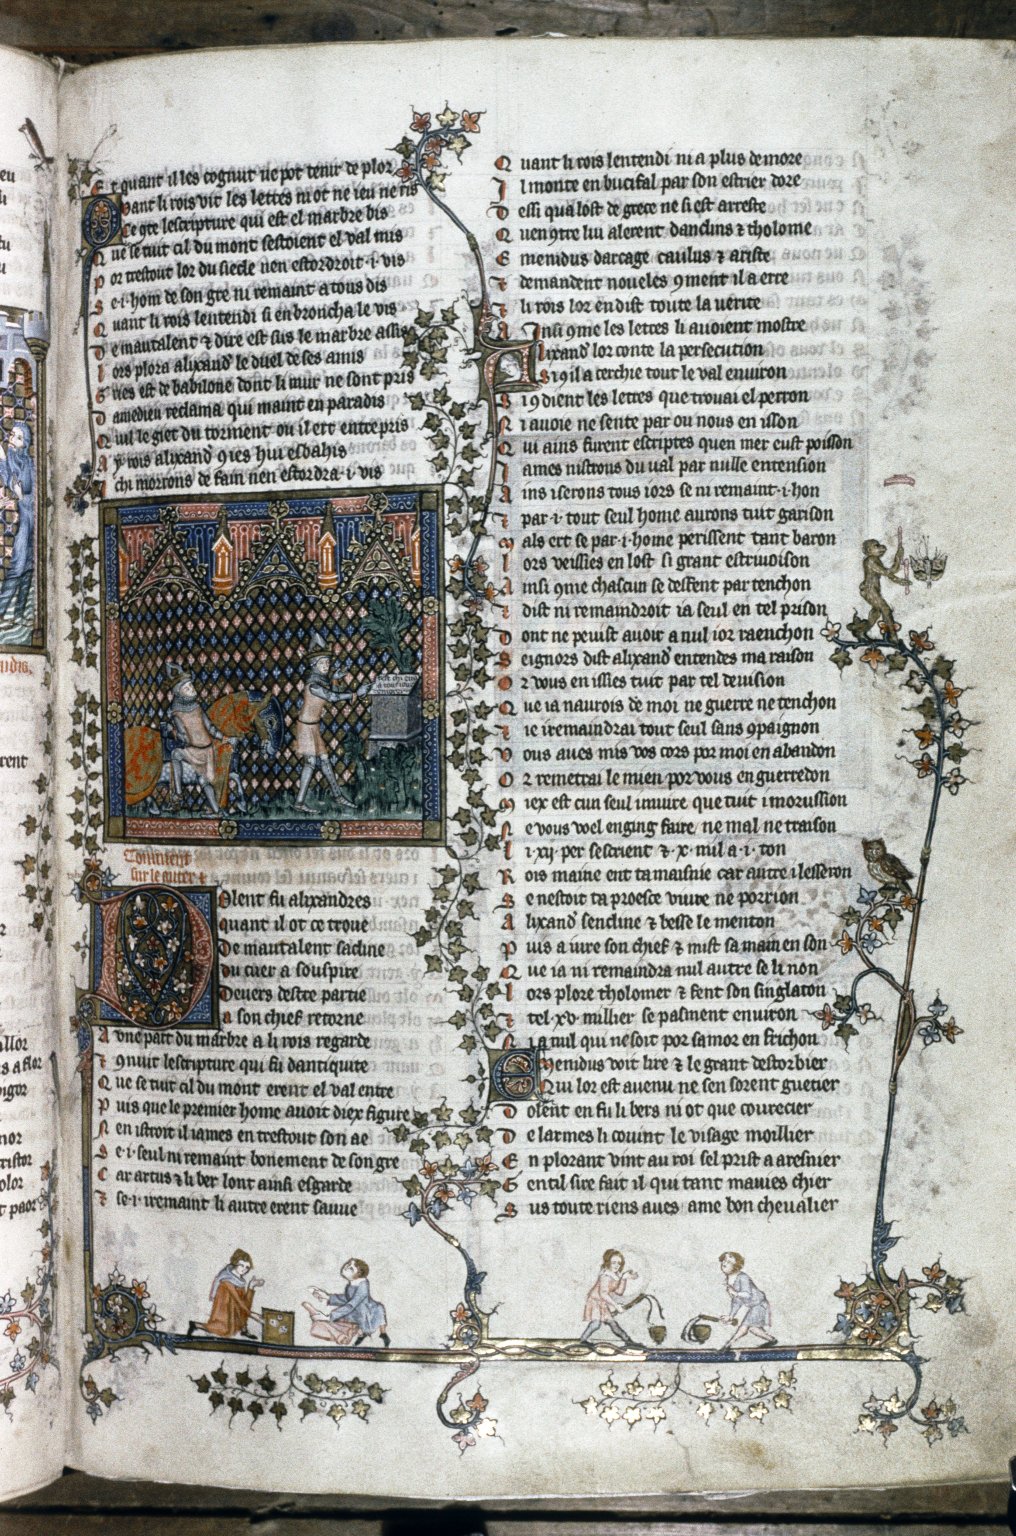 Et quant il les cognut ne pot tenir de plor
Quant li rois vit les lettes ni ot ne ieu ne ris
Ce gte lescripture qui est el marbre bis
Que se tuit cil du mont sestoient el val mis
Por trestout lor du siecle nen estordroit .i. vis
Se .i. hom de son gre ni remaint a tous dis
Quant li rois lentendi si en broncha le vis
De mautalent & dire est sus le marbre assis
Lors plora alixand le duel de ses amis
Gries est de babilone dont li mur ne sont pris
Damedieu reclama qui maint en paradis
Quil le giet du torment ou il ert entrepris
Ay rois alixand 9ies hui esbahis
Ichi morrons de fain nen estordra .i. vis
Comment
sur le autre
Dolent fu alixandres
quant il ot ce troue
De mautalent sacline
du cuer a souspire
Deuers destre partie
a son chief retorne
Dune part du marbre a li rois regarde
& 9nuit lescripture qui fu dantiquite
Que se tuit cil du mont erent el val entre
Puis que le premier home auoit diex figure
Nen istroit il iames en trestout son ae
Se .i. seul ni remaint bonement de son gre
Car artus & liber lont ainsi esgarde
& se .i. i remaint li autre erent sauue
Quant li rois lentendi ni a plus demore
Il monte en bucifal par son estrier dore
Dessi qua lost de grece ne si est arreste
Quen 9tre lui alerent danclins & tholome
Emenidus darcage caulus & ariste
& demandent noueles 9ment il a erre
& li rois lor en dist toute la verite
Ainsi 9me les lettes li auoient mostre
Alixand lor conte la persecution
Si 9 il a cerchie tout le val enuiron
Si 9 dient les lettes que trouai el perron
Ni auoie ne sente par ou nous en isson
Qui ains furent escriptes quen mer eust poisson
James nistrons du ual par nulle entension
Ains i serons tous iors se ni remaint .i. hon
& par .i. tout seul home aurons tuit garison
Mals ert se par .i. home perissent tant baron
Lors veissies en lost si grant estruoison
Ainsi 9me chascun se deffent par tenchon
& dist ni remaindroit ia seul en tel prison
Dont ne peuist auoir a nul ior raenchon
Seignors dist alixand entendes ma raison
Or vous en issies tuit par tel deuision
Que ia naurois de moi ne guerre ne tenchon
Je iremaindrai tout seul sans 9paignon
Vous aues mis vos cors por moi en abandon
Or remetrai le mien por vous en guerredon
Miex est cun seul i muire que tuit i morussion
Ne vous voel enging faire ne mal ne traison
Li .xij. per sescrient & .x. mil a .i. ton
Rois maine ent ta maisnie car autre i lesseron
Se nestoit ta proesce viure ne porrion
Alixand sencline & besse le menton
Puis a iure son chief & mist sa main en son
Que ia ni remaindra nul autre se li non
Lors plore tholomer & fent son singlaton
& tel .xv. millier se pasment enuiron
Ni a nul qui ne soit por samor en frichon
Emenidus voit lire & le grant destorbier
Qui lor est auenu ne sen sorent guetier
Dolent en fu li bers ni ot que courecier
De larmes li couint le visage moillier
En plorant vint au roi sel prist a aresnier
Gentil sire fait il qui tant maues chier
Sus toute riens aues ame bon cheualier